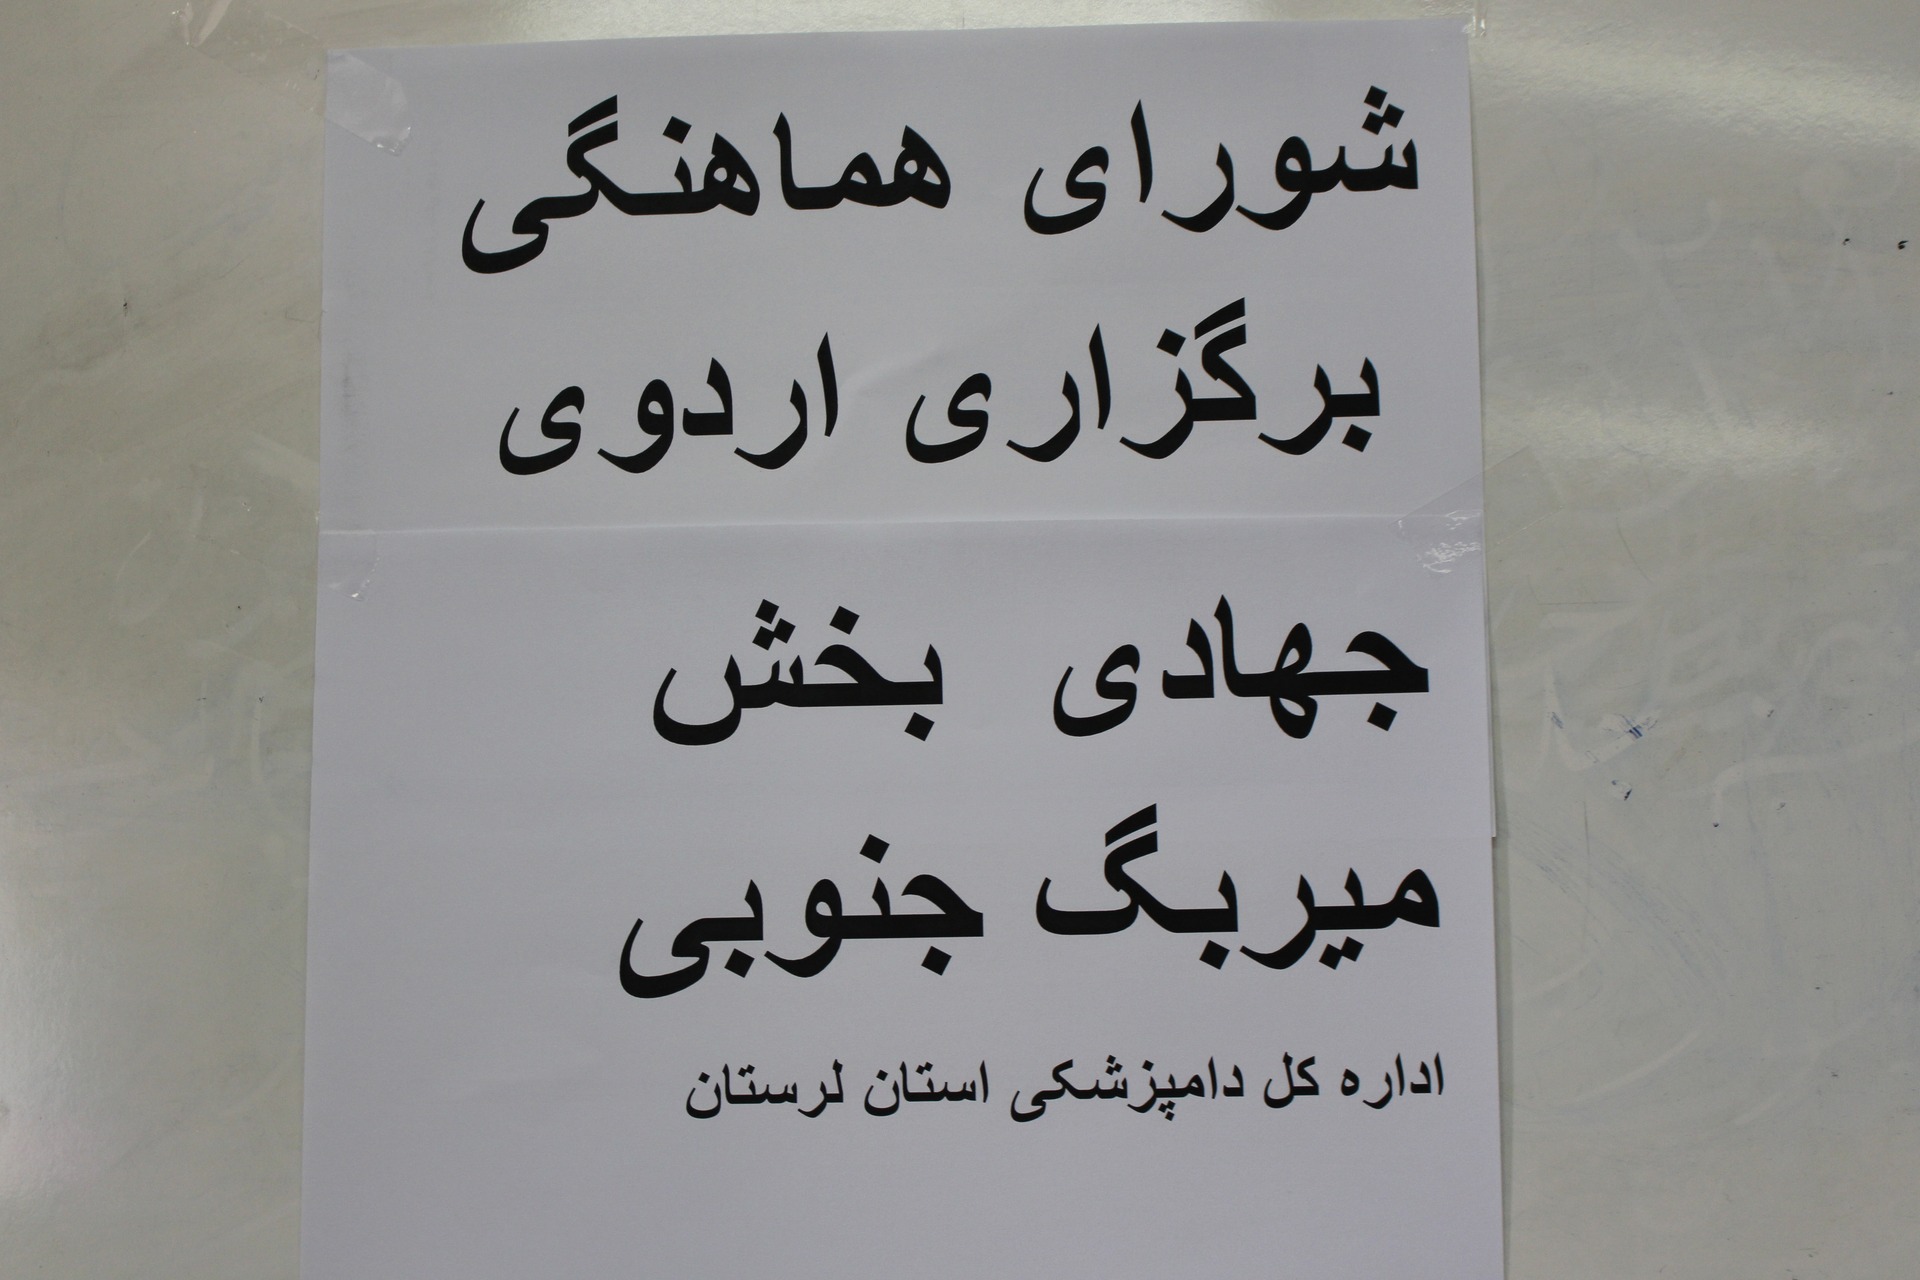 شورای هماهنگی
برگزاری اردوی
جهادی بخش
میربگ جنوبی
اداره کل دامپزشکی استان لرستان